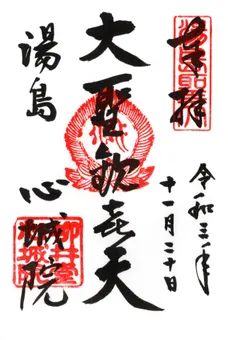 奉拝
令和三年
十一月二十日
大聖歓喜天
湯島
心城院